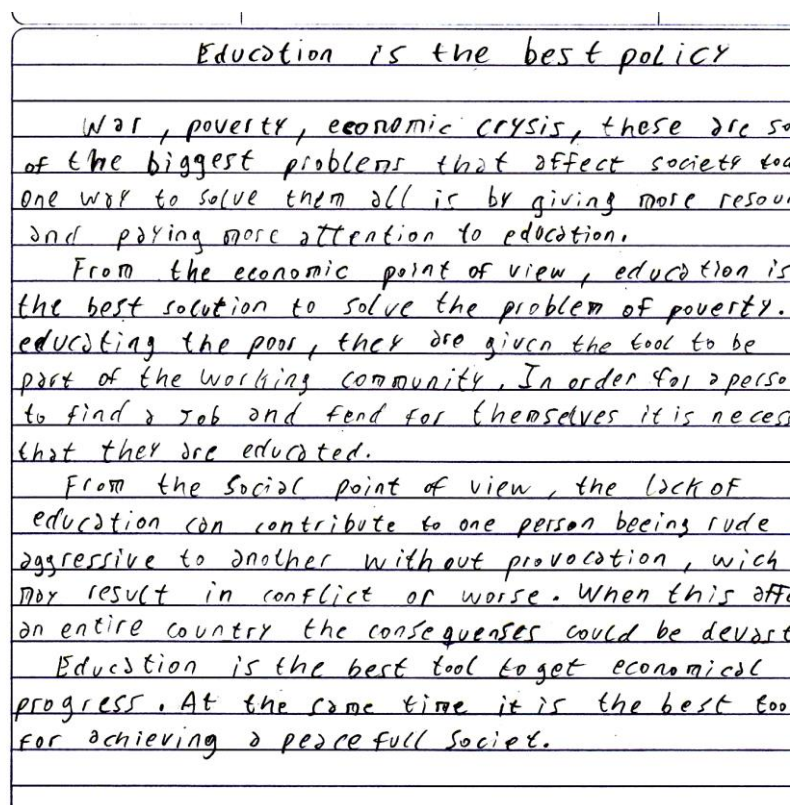 Education is the best policy
War, poverty, economic crysis, these are so
of the biggest problems that affect society tod
one way to solve them all is by giving more resou
and paying more attention to education.
From the economic point of view, education is
the best solution to solve the problem of poverty.
educating the poor, they are given the tool to be
part of the working community. In order for a perso
to find a Job and fend for themselves it is necess
that they are educated.
From the social point of view, the lack of
education can contribute to one person beeing rude
aggressive to another without provocation, wich
may result in conflict or worse. When this affe
an entire country the consequenses could be devast
Education is the best tool to get economical
progress. At the same time it is the best too
for achieving a peacefull societ.